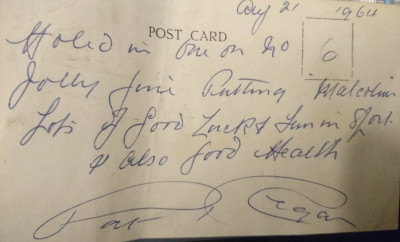 Aug 21 1964
POST CARD
Holed in one on No 6
Jolly fine Putting Malcolm
Lots of Good Luck & Fun in Sport
& also Good Health
Pat